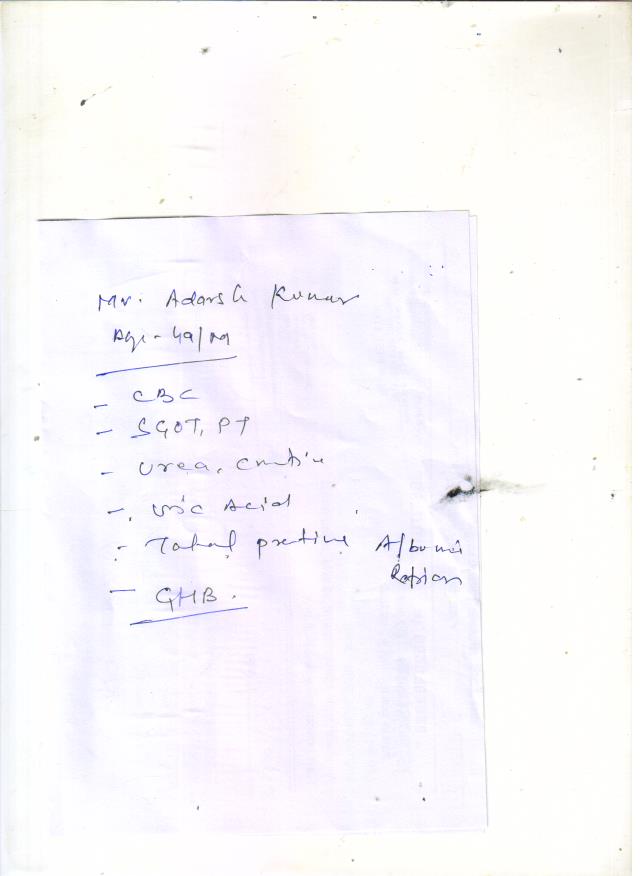 Mr. Adarsh Kumar
Age - 49/M
- CBC
- SGOT, PT
- Urea, 
- Uric Acid
- Total protine Albumi
- GHB.